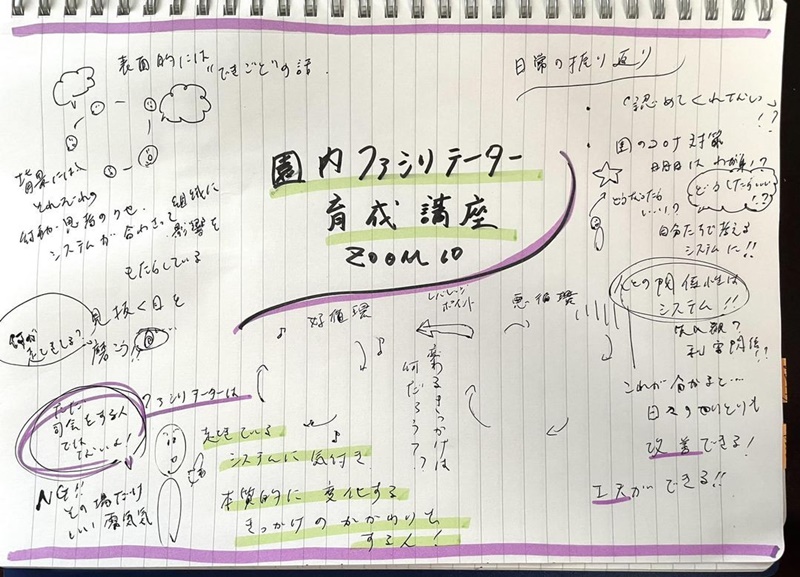 表面的には
"できごと"の話.
背景には、
それぞれの
行動・思考のクセ.
システムが合わさって
組織に
影響を
もたらしている
何が
起きてる?
見抜く目を
磨う!
園内ファシリテーター
育成講座
ZOOM 10
日常の振り返り
・「認めてくれてない」
!?
・園のコロナ対策
明日は わが身!?
どうなったら
いい!?
どうしたらいい
!?
自分たちで考える
システムに!!
人との関係性は
システム!!
利害関係!?
これが分かると…
日々のやりとりも
改善できる!
工夫ができる!!
♪ 好循環
レバレッジ
ポイント
悪循環
変わるきっかけは
何だろう??
ファシリテーターは
ただ
司会をする人
ではないよ!
NG!!
その場だけ
いい雰囲気
起きている
システムに気付き
本質的に変化する
きっかけのかかわりを
する人!